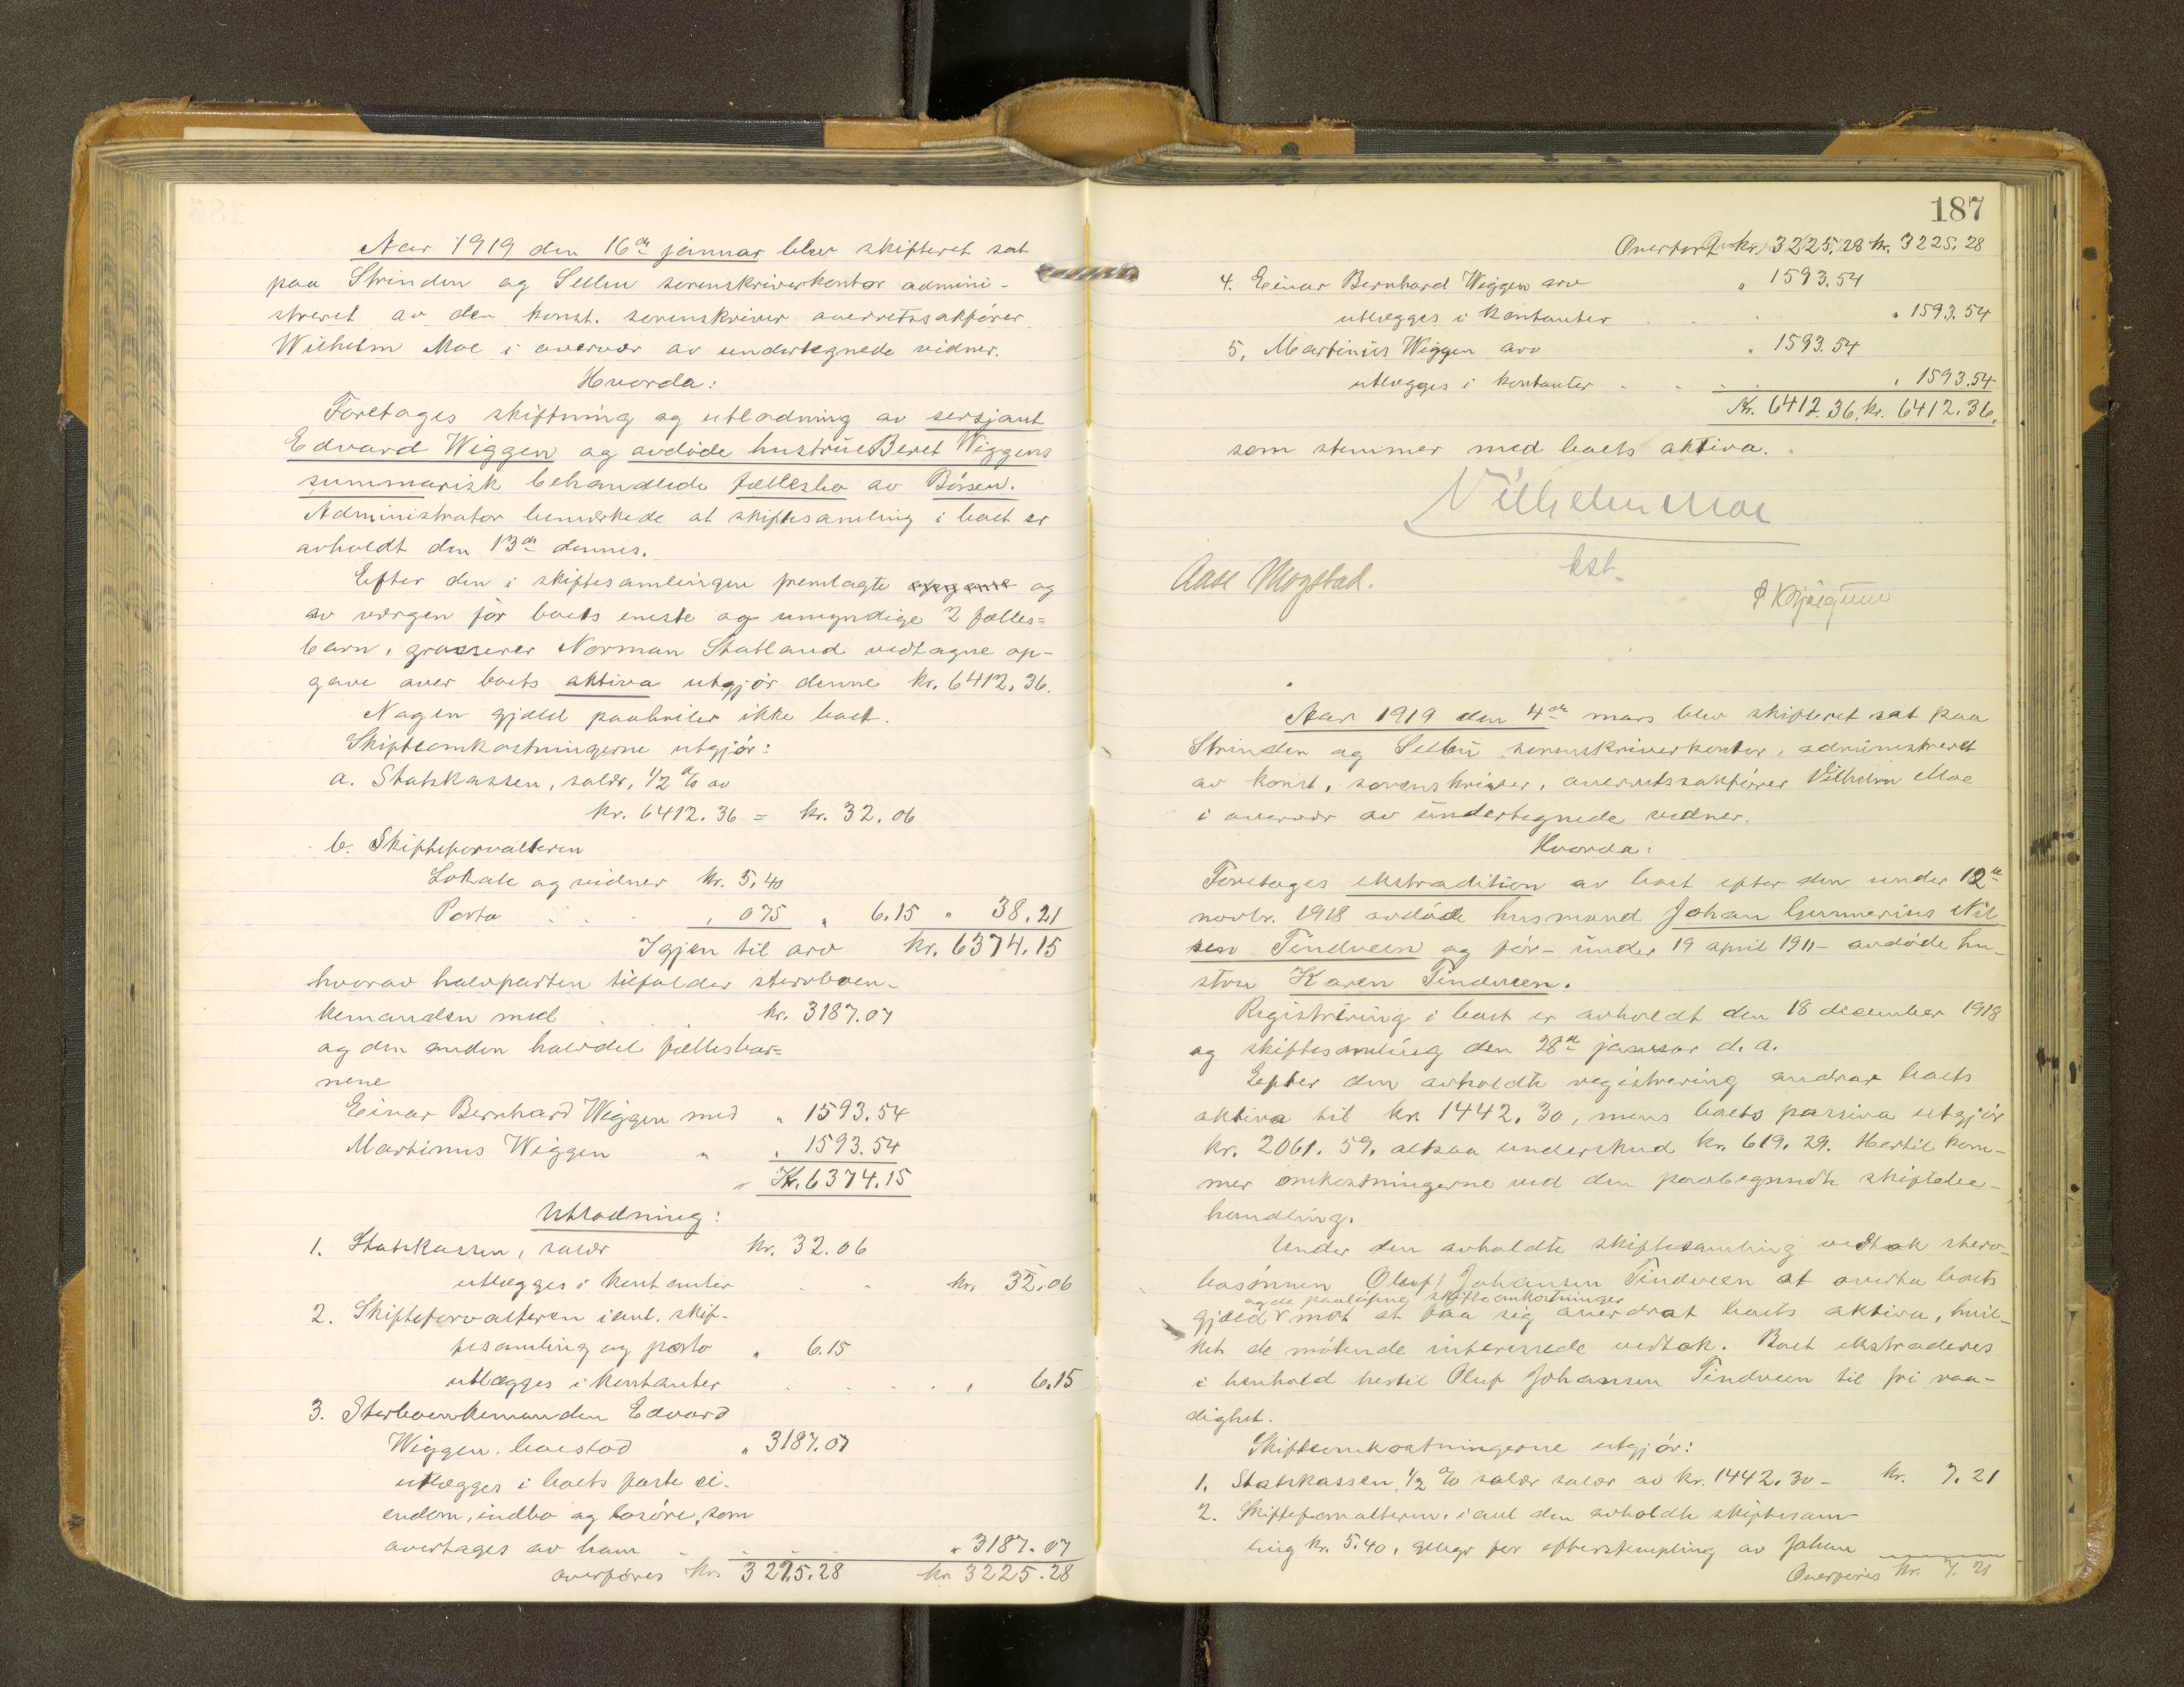 Aar 1919 den 16de januar blev skifteret sat
paa Strinden og Selbu sorenskriverkontor admini-
streret av den konst. sorenskriver overretssakfører
Wilhelm Moe i overvær av undertegnede vidner.
Hvorda:
Foretages skiftning og utlodning av sersjant
Edvard Wiggen og avdøde hustrue Beret Wiggens
summarisk behandlede fællesbo av Børsen.
Administrator bemerkede at skiftesamling i boet er
avholdt den 13de dennes.
Efter den i skiftesamlingen fremlagte opgave og
av værgen for boets eneste og umyndige 2 fælles=
barn, grosserer Norman Statland vedtagne op-
gave over boets aktiva utgjør denne kr. 6412.36.
Nogen gjæld paahviler ikke boet.
Skifteomkostningerne utgjør:
a. Statskassen, salær, 1/2 % av
kr. 6412.36 = kr. 32.06
b. Skifteforvalteren
Lokale og vidner kr. 5.40
Porto . . . " 0 75 " 6.15 " 38.21
Igjen til arv kr. 6374.15
hvorav halvparten tilfalder stervboen-
kemanden med . . kr. 3187.07
og den anden halvdel fællesbar=
nene
Einar Bernhard Wiggen med " 1593.54
Martinus Wiggen " " 1593.54
Kr. 6374.15
Utlodning:
1. Statskassen, salær kr. 32.06
utlægges i kontanter . . kr. 32.06
2. Skifteforvalteren i anl. skif-
tesamling og porto " 6.15
utlægges i kontanter . . . . " 6.15
3. Sterboenkemanden Edvard
Wiggen. boeslod " 3187.07
utlægges i boets faste ei-
endom, indbo og løsøre, som
overtages av ham " 3187.07
overføres kr. 3225.28 kr. 3225.28
187
Overført kr. 3225.28 kr. 3225.28
4. Einar Bernhard Wiggen arv " 1593.54
utlægges i kontanter . . . " 1593.54
5. Martinus Wiggen arv " 1593.54
utlægges i kontanter - - - . " 1593.54
Kr. 6412.36. kr. 6412.36.
som stemmer med boets aktiva.
Vilhelm Moe
kst.
Aase Mogstad.
Aar 1919 den 4de mars blev skifteret sat paa
Strinden og Selbu sorenskriverkontor, administreret
av konst. sorenskriver, overretssakfører Vilhelm Moe
i overvær av undertegnede vidner.
Hvorda:
Foretoges ekstradition av boet efter den under 12te
novbr. 1918 avdøde husmand Johan Gunnerius Nil
sen Tindveen og før - under 19 april 1911 - avdøde hu-
stru Karen Tindveen.
Registrering i boet er avholdt den 18 december 1918
og skiftesamling den 28de januar d. a.
Efter den avholdte registrering andrar boets
aktiva til kr. 1442.30, mens boets passiva utgjør
kr. 2061.59. altsaa underskud kr. 619.29. Hertil kom-
mer omkostningerne ved den paabegyndte skiftebe-
handling.
Under den avholdte skiftesamling vedtok sterv-
bosønnen Oluf Johansen Tindveen at overta boets
og de paaløpne skifteomkostninger
gjæld mot at faa sig overdrat boets aktiva, hvil-
ket de møtende interesserede vedtok. Boet ekstraderes
i henhold hertil Oluf Johansen Tindveen til fri raa-
dighet.
Skifteomkostningerne utgjør:
1. Statskassen 1/2 % salær salær av kr. 1442.30 - kr. 7.21
2. Skifteforvalteren i anl den avholdte skiftesam-
ling kr. 5.40, gebyr for efterstempling av Johan
Overføres kr. 7.21